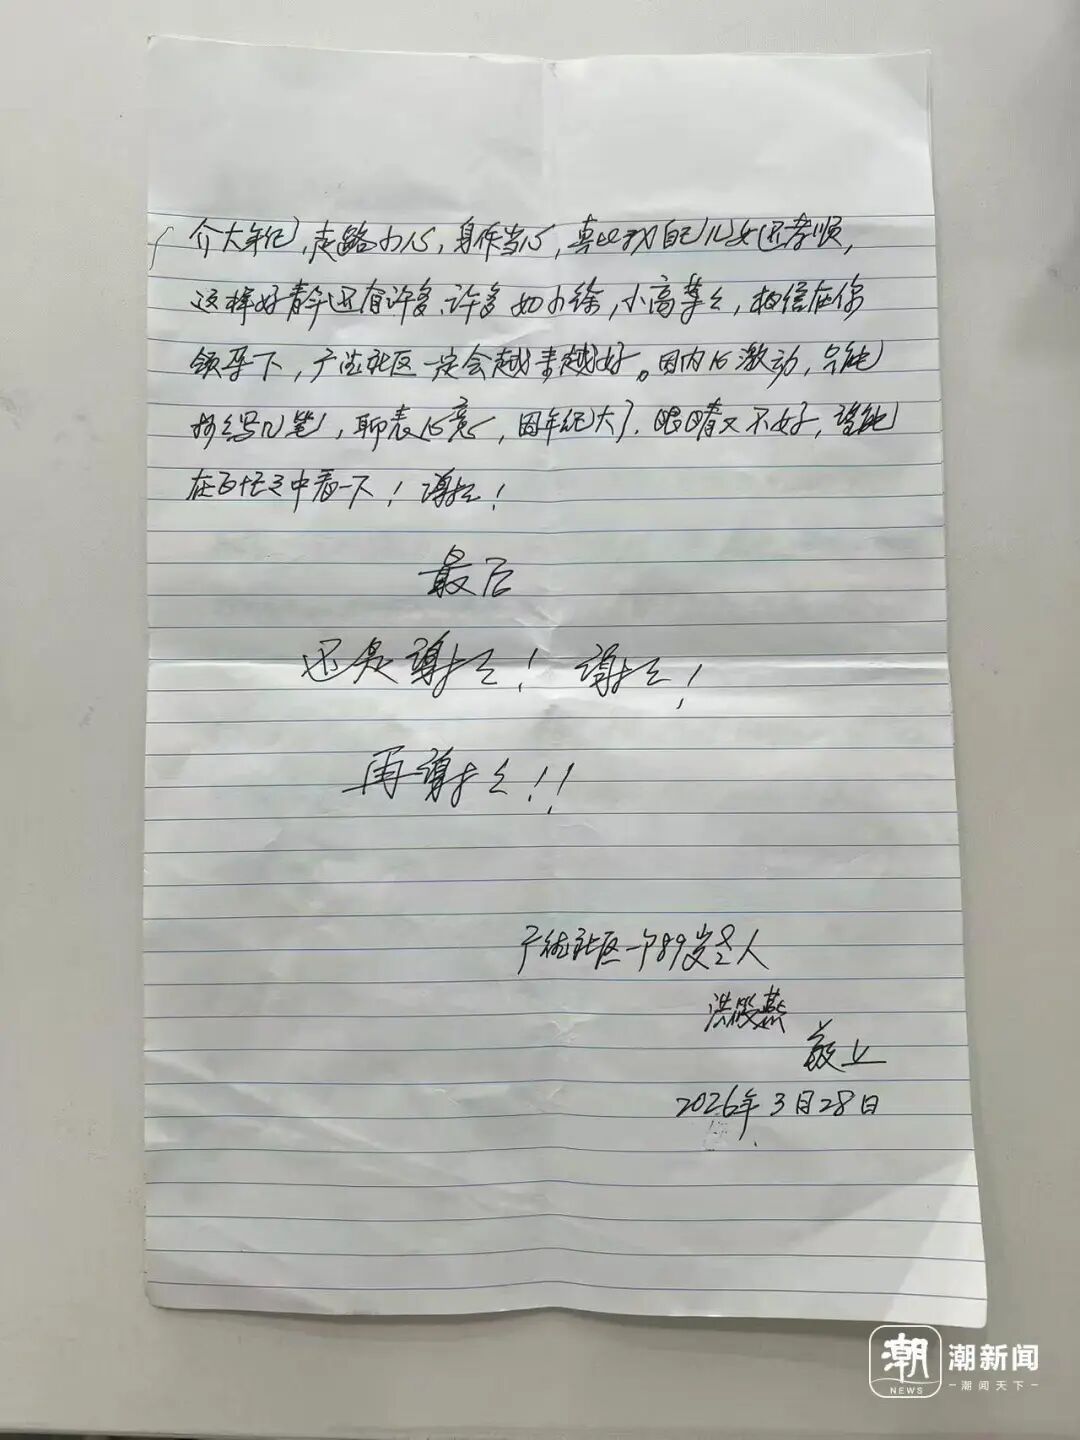 介大年纪，走路小心，身体当心，真比我自己儿女还孝顺，
这样好青年还有许多、许多如小徐，小高等等，相信在你
领导下，社区一定会越来越好。因内心激动，只能
写几笔，聊表心意，因年纪大了，眼睛又不好，望能
在百忙之中看一下！谢谢！
最后
还是谢谢！谢谢！
再谢谢！！
社区一个89岁老人
洪筱燕
敬上
2026年3月28日
潮 潮新闻
NEWS 潮闻天下